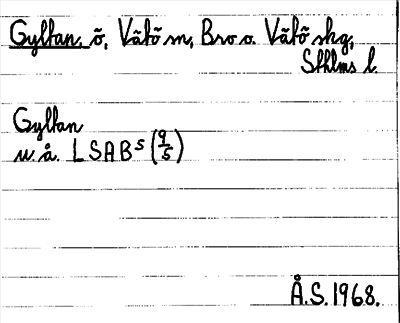 Gyltan, ö, Vätö sn, Bro o. Vätö skg,
Sthlms l.
Gyltan
u. å. LSAB⁵ (9/5)
Å.S. 1968.